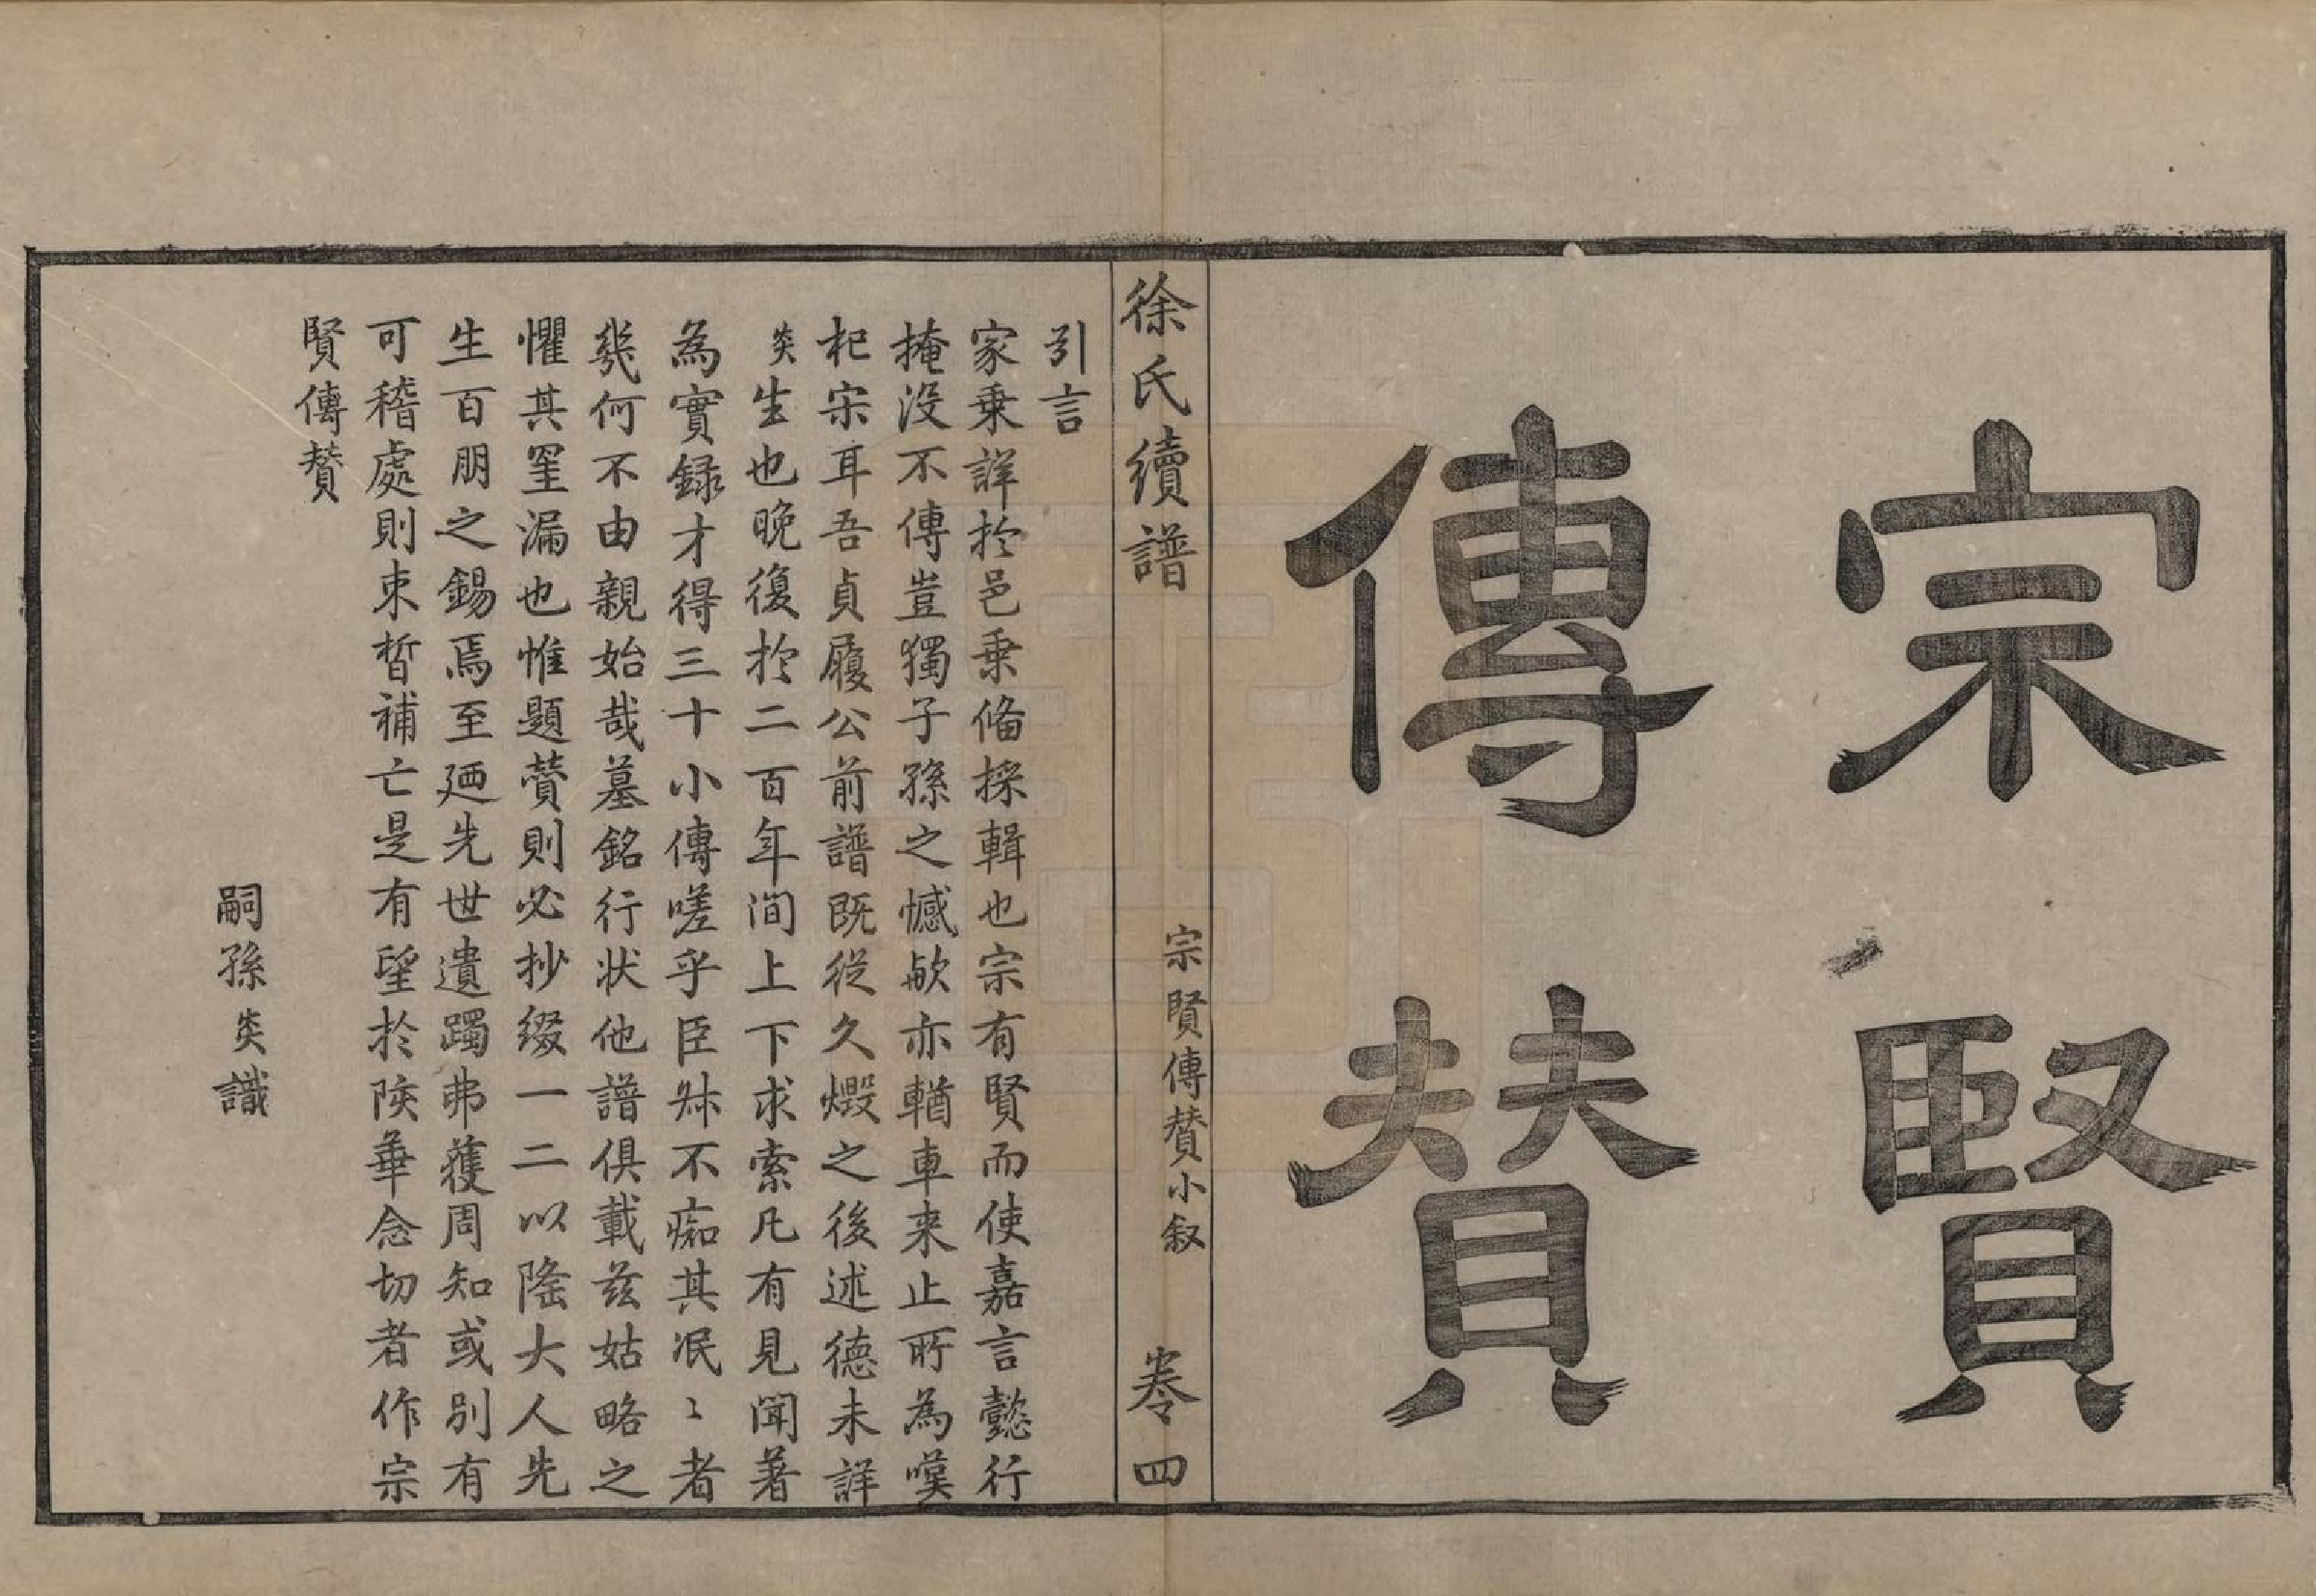 宗賢
傳賛
徐氏續譜
宗賢傳賛小叙
卷四
引言
家乗詳於邑乗俻採輯也宗有賢而使嘉言懿行
掩没不傳豈獨子孫之憾歟亦輶車来止所為嘆
杞宋耳吾貞履公前譜既從久燬之後述德未詳
炎生也晚復於二百年間上下求索凡有見聞著
為實録才得三十小傳嗟乎臣叔不痴其泯〻者
幾何不由親始哉墓銘行状他譜俱載兹姑略之
懼其罣漏也惟題賛則必抄綴一二以隆大人先
生百朋之錫焉至廼先世遺躅弗獲周知或别有
可稽處則束晳補亡是有望於陔華念切者作宗
賢傳賛
嗣孫炎識